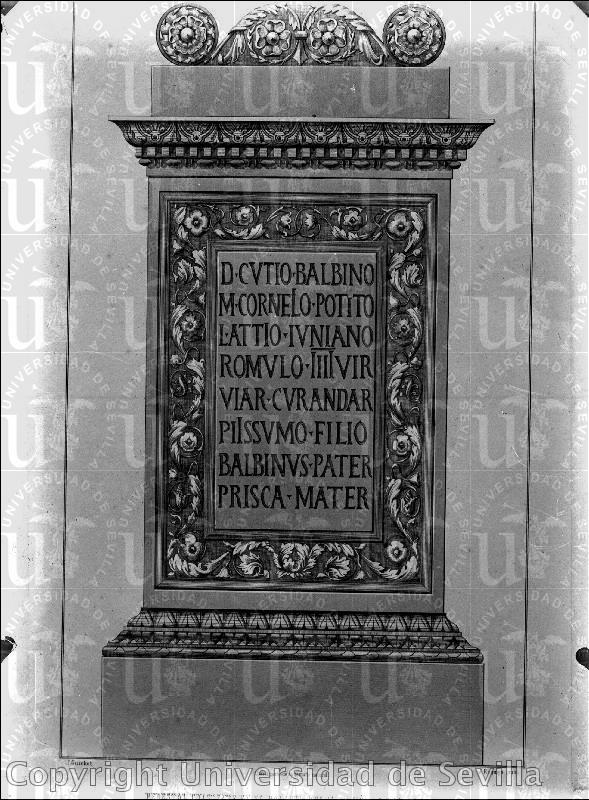 D·CVTIO·BALBINO
M·CORNELO·POTITO
L·ATTIO·IVNIANO
ROMVLO·IIIIVIR
VIAR·CVRANDAR
PIISSVMO·FILIO
BALBINVS·PATER
PRISCA·MATER
Copyright Universidad de Sevilla